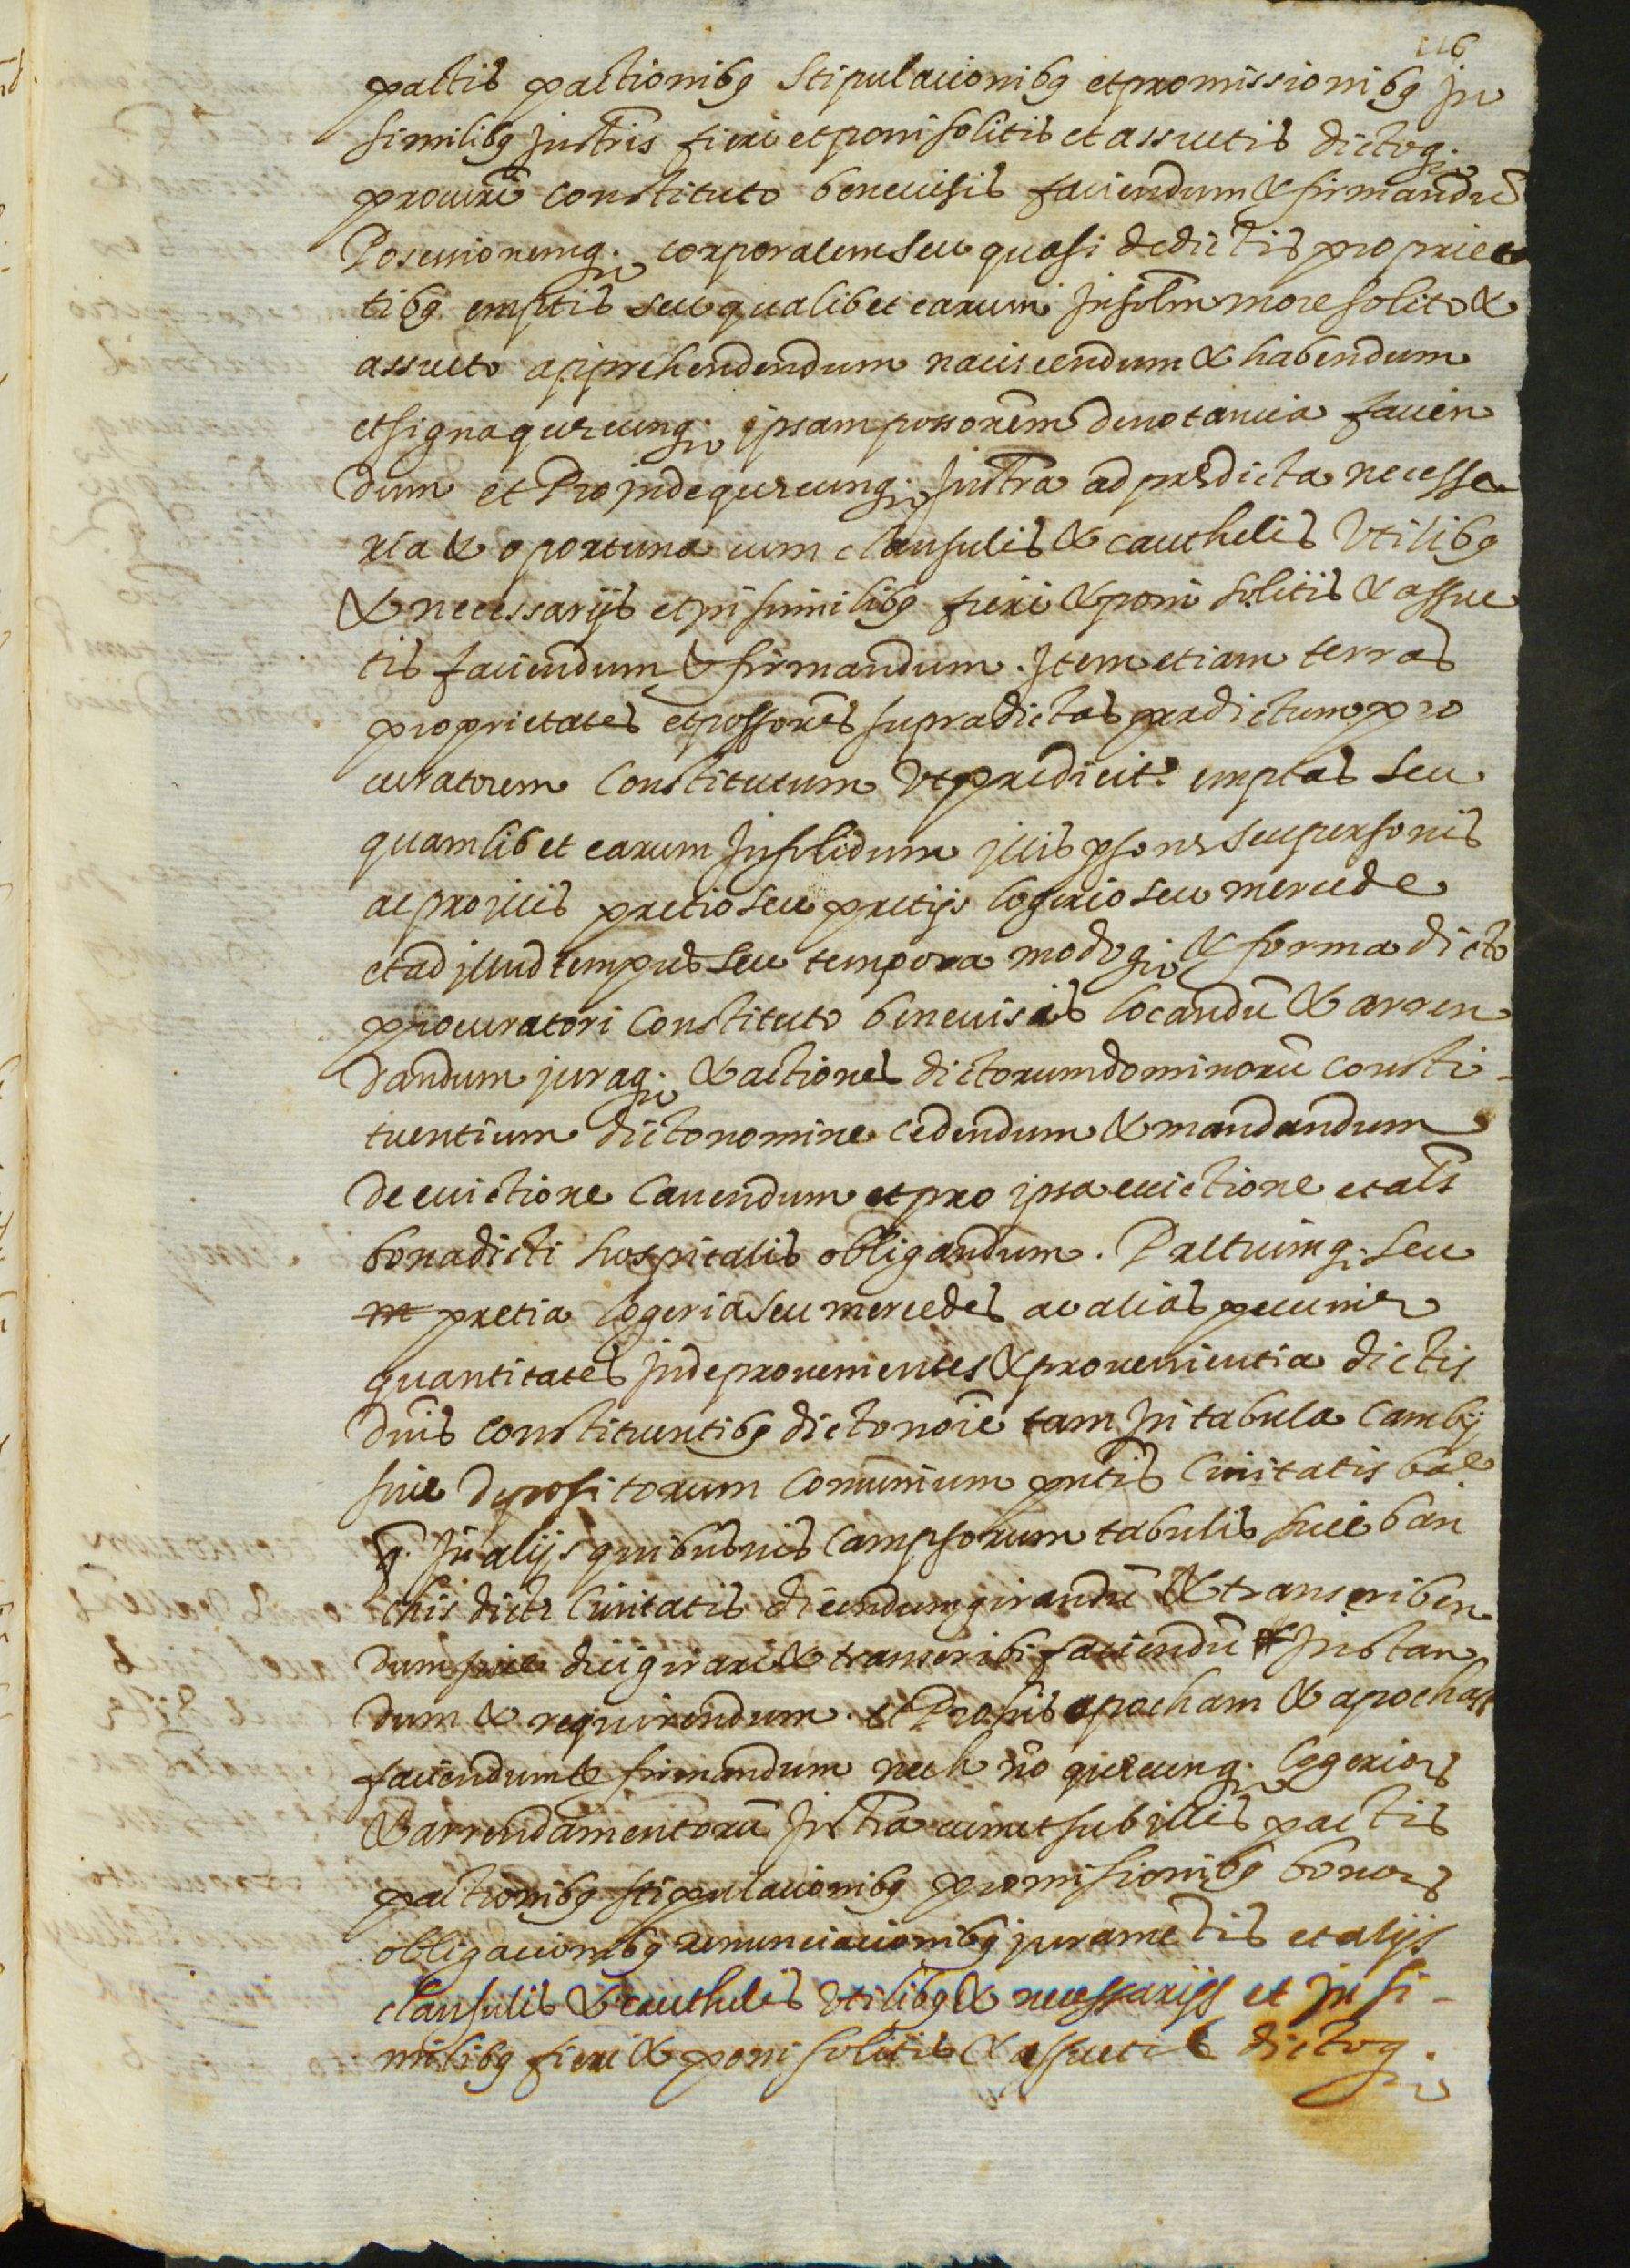 116
pactis pactionibꝫ stipulacionibꝫ et promissionibꝫ in
similibꝫ Instris fieri et poni solitis et assuetis dictoqꝫ
procuri constituto benevisis faciendum & firmandũ
Posessionemqꝫ corporalem seu quasi de dictis proprieta
tibꝫ emptis seu qualibet earum Insolm more solito &
assueto apprehendendum naciscendum & habendum
et signa quecunqꝫ ipsam possonem denotancia facien
dum et Proinde quecunqꝫ Instra ad predicta necessa
ria & oportuna cum clausulis & cauthelis Vtilibꝫ
& necessarijs et in similibꝫ fieri & poni solitis & assue
tis faciendum & firmandum. Item etiam terras
proprietates et possones supradictas per dictum pro
curatorem Constitutum Vt predicit.r emptas seu
quamlibet earum Insolidum illis psone seu personis
ac pro illis pretio seu pretijs logerio seu mercede
et ad illud tempus seu tempora modoqꝫ & forma dicto
procuratori Constituto benevisis locandũ & arren
dandum juraqꝫ & actiones dictorum dominorũ consti-
tuentium dicto nomine cedendum & mandandum
De evictione Cavendum et pro ipsa evictione et als
bona dicti hospitalis obligandum. Pretiumqꝫ seu
pretia logeria seu mercedes ac alias pecunie
quantitates Inde provenientes & provenientia dictis
dnis constituentibꝫ dicto noie tam In tabula Cambij
sive depositorum comunium pntis Civitatis bare
q. In alijs quibusvis campsorum tabulis sive ban
chis dicte Civitatis dicendum girandũ & transcriben
dum sive dici girari & transcribi faciendũ Instan
dum & requirendum. et Pro his apocham & apochas
faciendum & firmandum nech nõ quecunqꝫ logerior.
& arrendamentorũ Instra cum et sub illis pactis
pactionibꝫ stipulacionibꝫ promisionibꝫ bonor.
obligacionibꝫ renunciacionibꝫ juramẽtis et alijs
clausulis & cauthelis Vtilibꝫ & necessarijs et in si-
milibꝫ fieri & poni solitis & assuetis dictoqꝫ